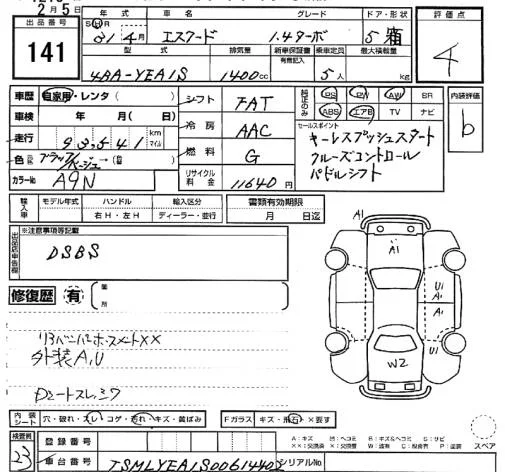 2月5日
出品番号 141
年式 車名 グレード ドア・形状
SⒽR 31年4月 エスクード 1.4ターボ 5 箱
型式 排気量 新車保証書 乗車定員 最大積載量
有無記入
4BA-YEA1S 1400cc 5人 kg
評価点
4
車歴 自家用・レンタ( )
車検 年 月( 日)
走行 93,541 km マイル
色 ブラック/ベージュ→( )
カラーNo A9N
シフト FAT
冷房 AAC
燃料 G
リサイクル料金 11640円
純正のみ PS PW AW BR
ABS エアB TV ナビ
セールスポイント
キーレスプッシュスタート
クルーズコントロール
パドルシフト
内装評価
b
輸入車 モデル年式 ハンドル 輸入区分
右H・左H ディーラー・並行
書類有効期限
月 日迄
出品店申告欄 ※注意事項等記載
DSBS
修復歴 有 箇所
A1
A1
U1
A1
A1
U1
W2
外装A,U
内装シート 穴・破れ・スレ・コゲ・汚れ・キズ・黄ばみ
Fガラス キズ・飛石・×要す
検査員 23
登録番号
車台番号 TSMLYEA1S00614403
シリアルNo
A:キズ
スペア